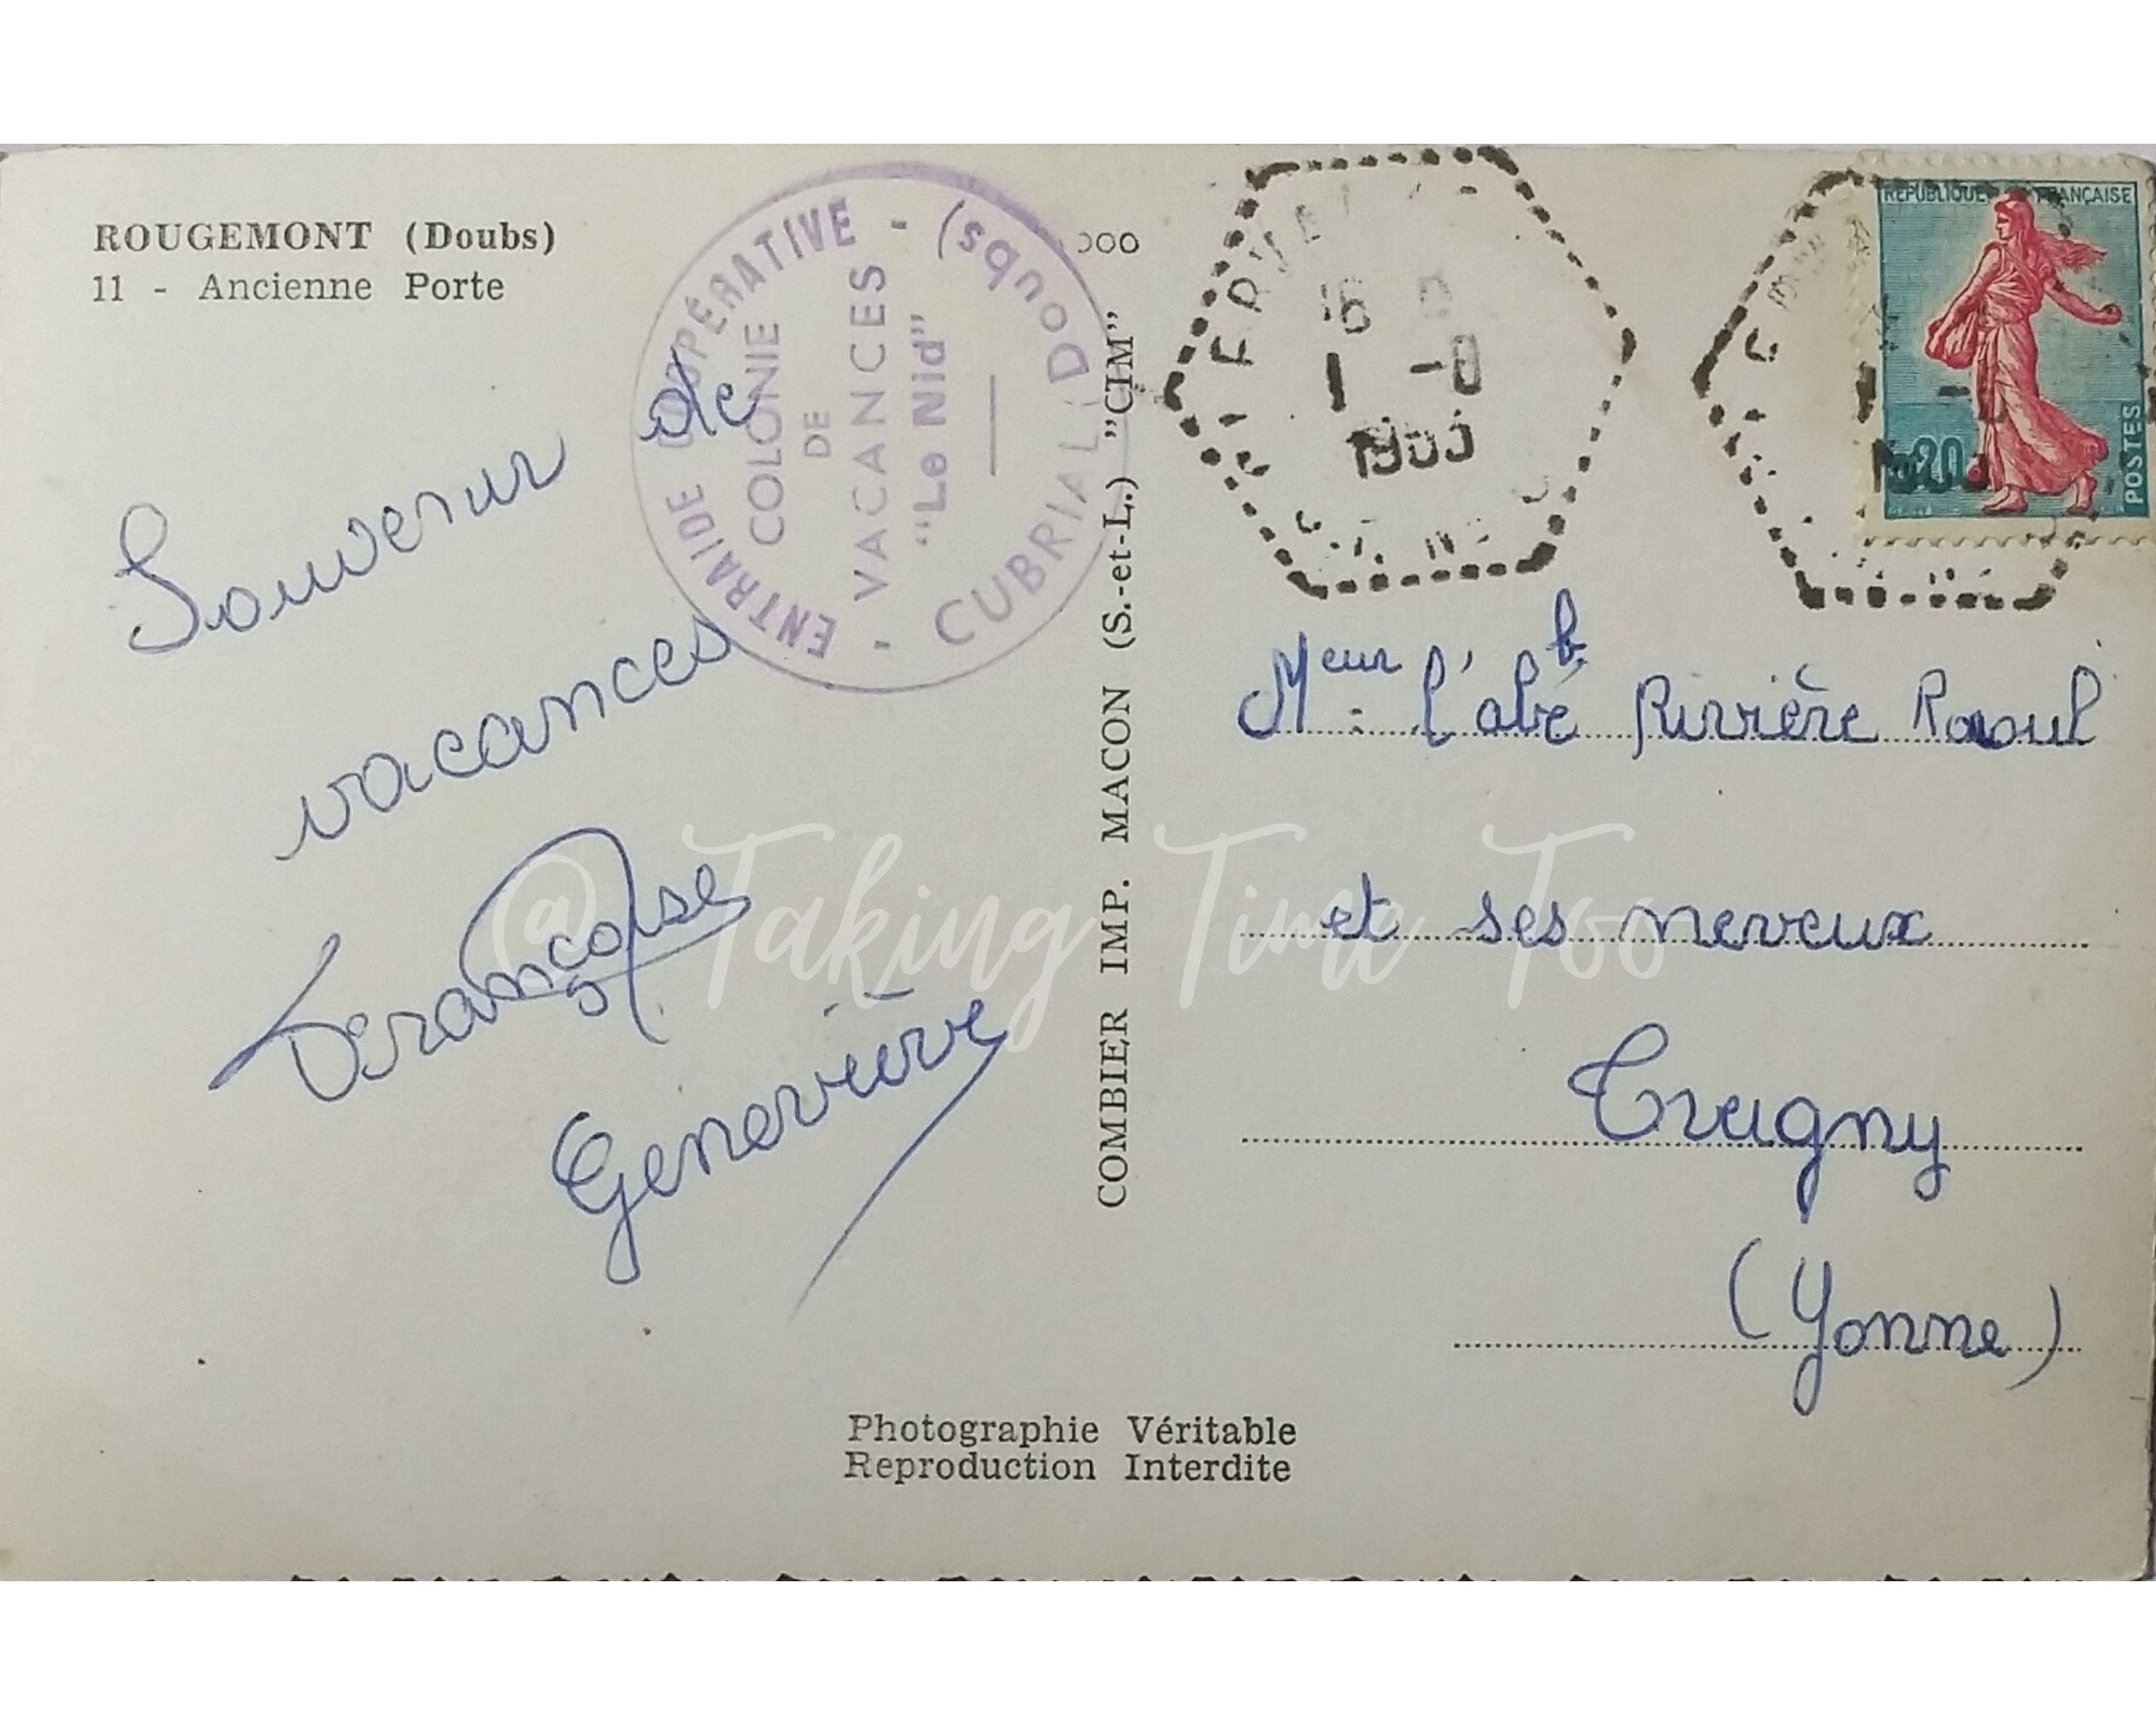 ROUGEMONT (Doubs)
11 - Ancienne Porte
ENTRAIDE COOPÉRATIVE -
COLONIE
DE
VACANCES
"Le Nid"
- CUBRIAL (Doubs)
Souvenir de
vacances
Françoise
Geneviève
COMBIER IMP. MACON (S.-et-L.) "CIM"
16
1 -8
RÉPUBLIQUE FRANÇAISE
0,20
POSTES
Meur l'abbé Rivière Raoul
et ses neveux
Treigny
(Yonne)
@ Taking Time Too
Photographie Véritable
Reproduction Interdite